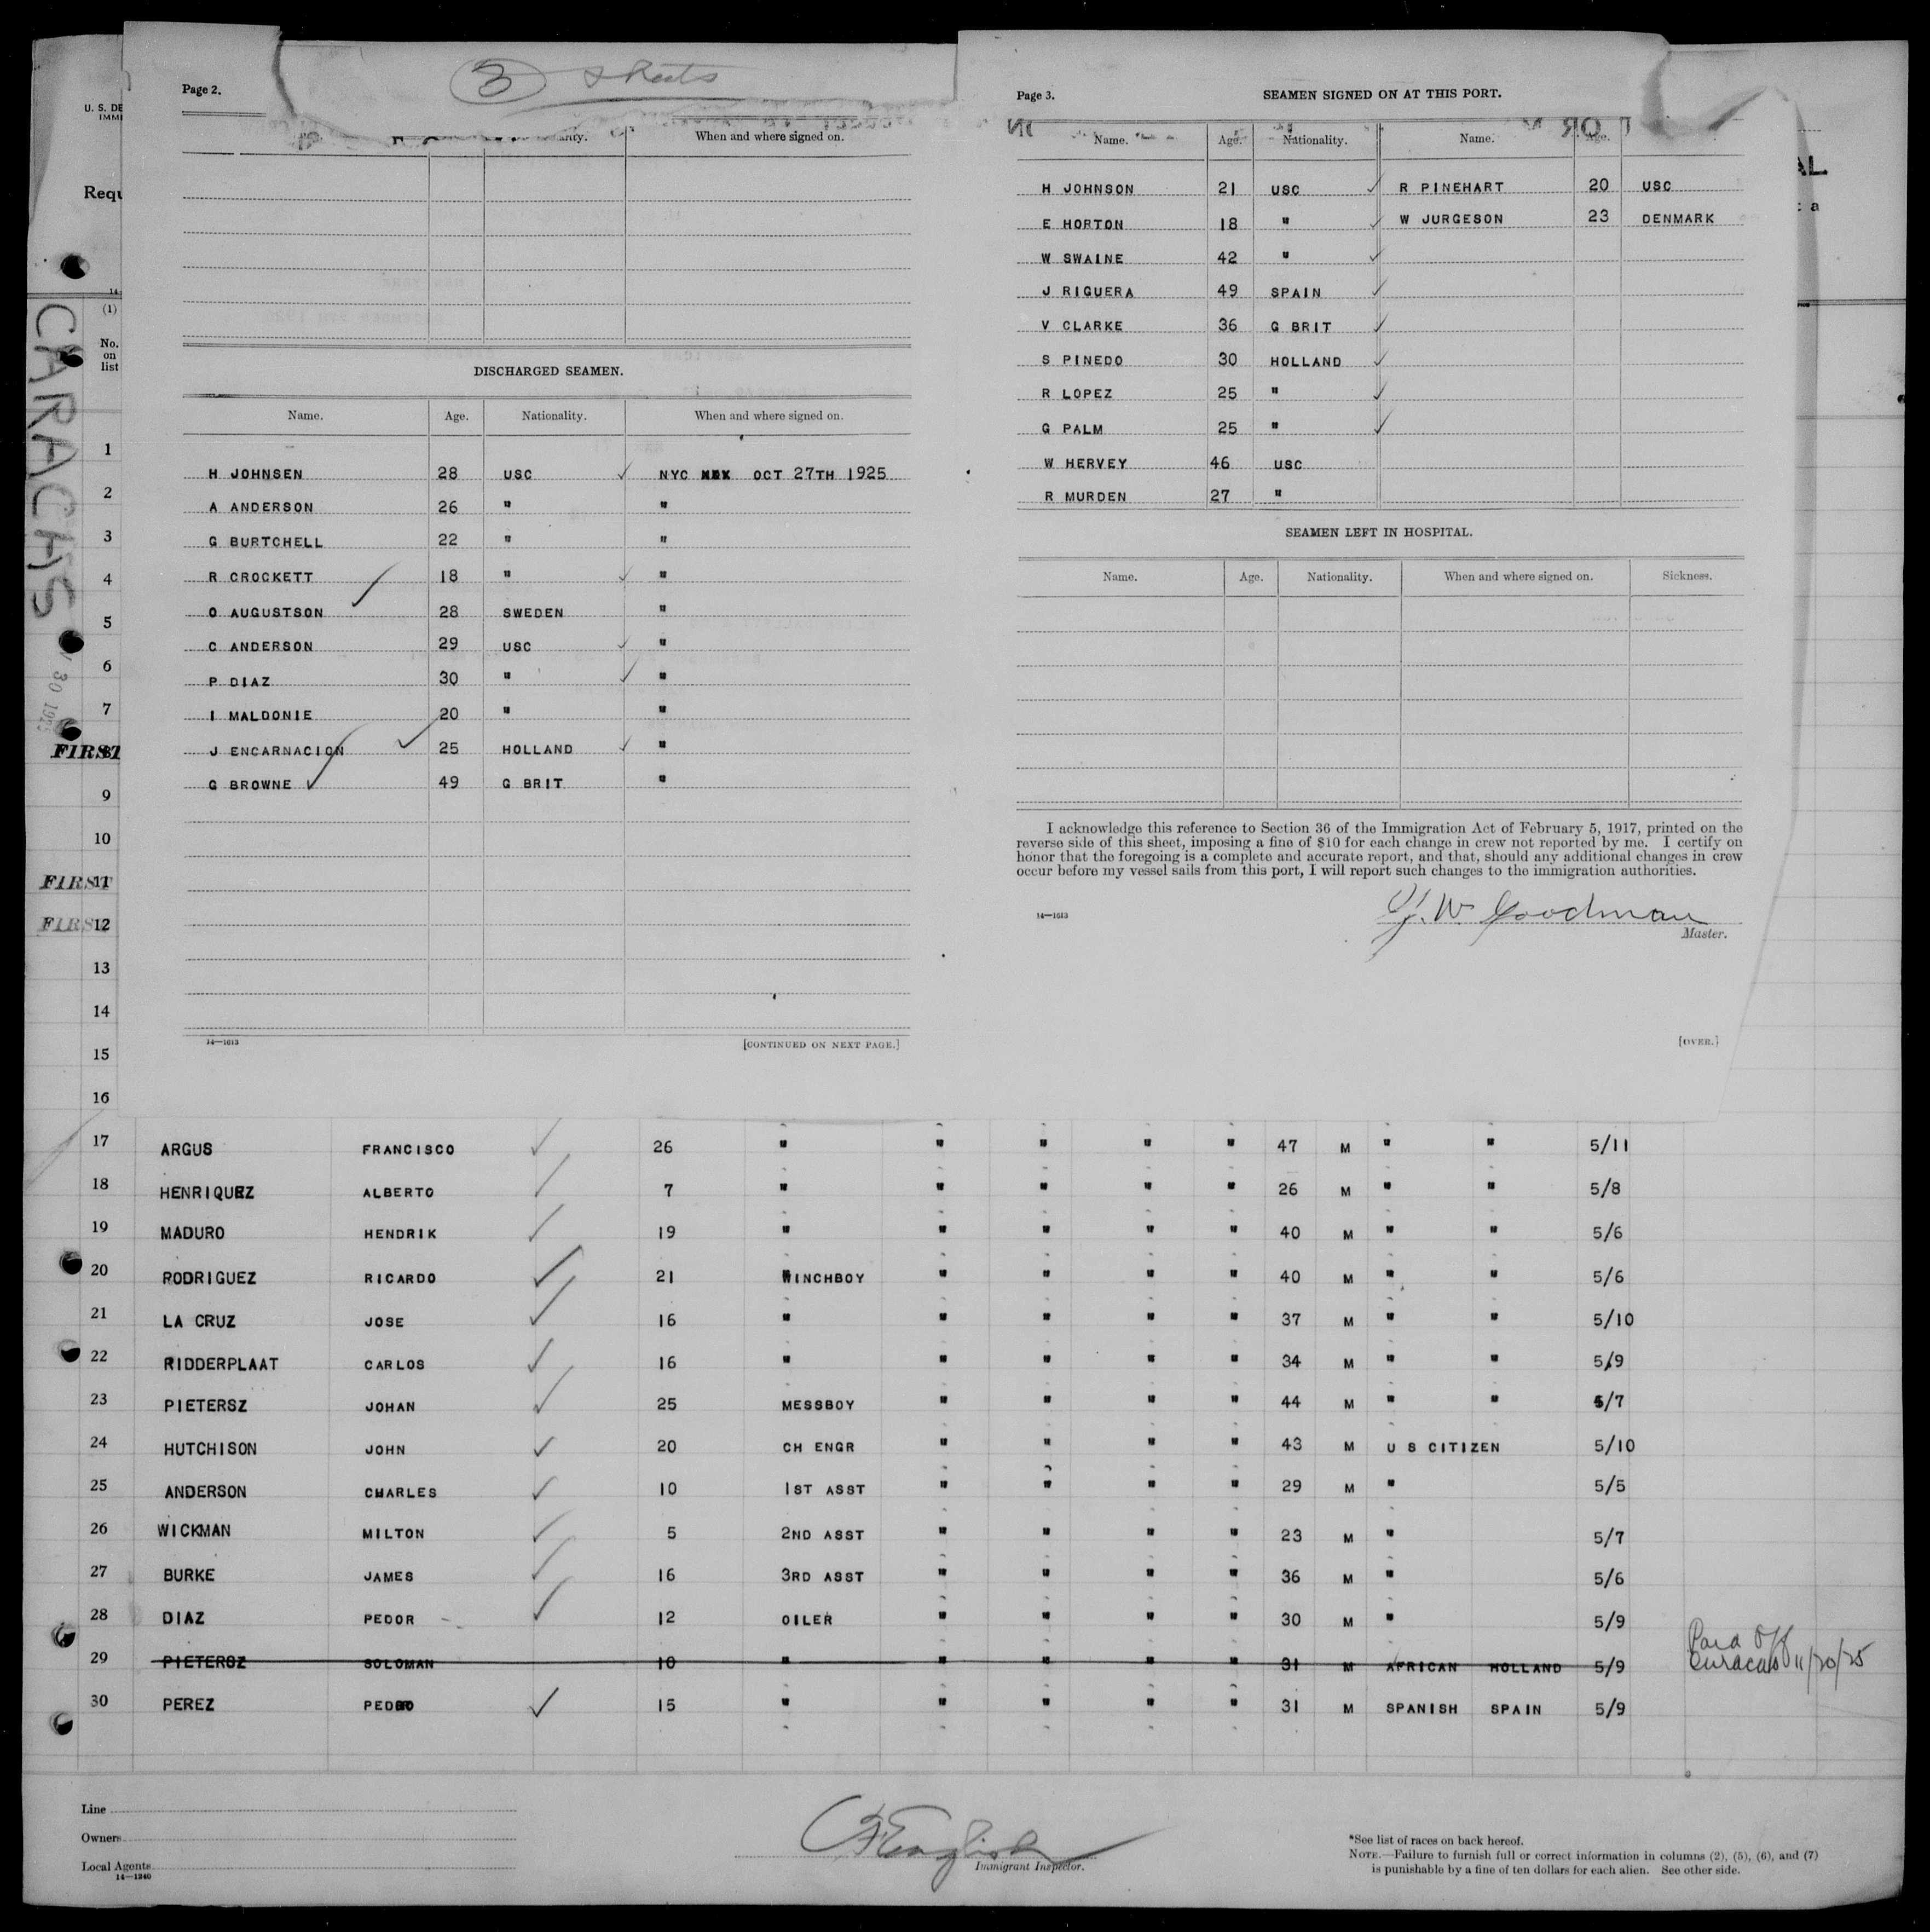 Page 2.
③ sheets
U. S. DE
IMMI
Requ
When and where signed on.
DISCHARGED SEAMEN.
Name. Age. Nationality. When and where signed on.
H JOHNSEN 28 USC ✓ NYC OCT 27TH 1925
A ANDERSON 26 " "
G BURTCHELL 22 " "
R CROCKETT 18 " ✓ "
O AUGUSTSON ✓ 28 SWEDEN "
C ANDERSON 29 USC ✓ "
P DIAZ 30 " ✓ "
I MALDONIE 20 " "
J ENCARNACION ✓ 25 HOLLAND ✓ "
G BROWNE ✓ 49 G BRIT "
14—1613 [CONTINUED ON NEXT PAGE.]
Page 3. SEAMEN SIGNED ON AT THIS PORT.
Name. Age. Nationality. Name. Age.
H JOHNSON 21 USC ✓ R PINEHART 20 USC
E HORTON 18 " ✓ W JURGESON 23 DENMARK
W SWAINE 42 " ✓
J RIGUERA 49 SPAIN ✓
V CLARKE 36 G BRIT ✓
S PINEDO 30 HOLLAND ✓
R LOPEZ 25 " ✓
G PALM 25 " ✓
W HERVEY 46 USC
R MURDEN 27 "
SEAMEN LEFT IN HOSPITAL.
Name. Age. Nationality. When and where signed on. Sickness.
I acknowledge this reference to Section 36 of the Immigration Act of February 5, 1917, printed on the
reverse side of this sheet, imposing a fine of $10 for each change in crew not reported by me. I certify on
honor that the foregoing is a complete and accurate report, and that, should any additional changes in crew
occur before my vessel sails from this port, I will report such changes to the immigration authorities.
14—1613
W Goodman
Master.
[OVER.]
AL
: a
14
(1)
No.
on
list
CARACAS
30
1
2
3
4
5
6
7
FIRST
9
10
FIRST 11
FIRS 12
13
14
15
16
17 ARGUS FRANCISCO ✓ 26 " " " " " 47 M " " 5/11
18 HENRIQUEZ ALBERTO ✓ 7 " " " " " 26 M " " 5/8
19 MADURO HENDRIK ✓ 19 " " " " " 40 M " " 5/6
20 RODRIGUEZ RICARDO ✓ 21 WINCHBOY " " " " 40 M " " 5/6
21 LA CRUZ JOSE ✓ 16 " " " " " 37 M " " 5/10
22 RIDDERPLAAT CARLOS ✓ 16 " " " " " 34 M " " 5/9
23 PIETERSZ JOHAN ✓ 25 MESSBOY " " " " 44 M " " 5/7
24 HUTCHISON JOHN ✓ 20 CH ENGR " " " " 43 M U S CITIZEN 5/10
25 ANDERSON CHARLES ✓ 10 1ST ASST " " " " 29 M " 5/5
26 WICKMAN MILTON ✓ 5 2ND ASST " " " " 23 M " 5/7
27 BURKE JAMES ✓ 16 3RD ASST " " " " 36 M " 5/6
28 DIAZ PEDOR ✓ 12 OILER " " " " 30 M " 5/9
29 PIETERSZ SOLOMAN 10 " " " " " 31 M AFRICAN HOLLAND 5/9 Paid Off
Curacao 11/20/25
30 PEREZ PEDRO ✓ 15 " " " " " 31 M SPANISH SPAIN 5/9
Line
Owners
Local Agents
14—1240
English
Immigrant Inspector.
*See list of races on back hereof.
NOTE.—Failure to furnish full or correct information in columns (2), (5), (6), and (7)
is punishable by a fine of ten dollars for each alien. See other side.